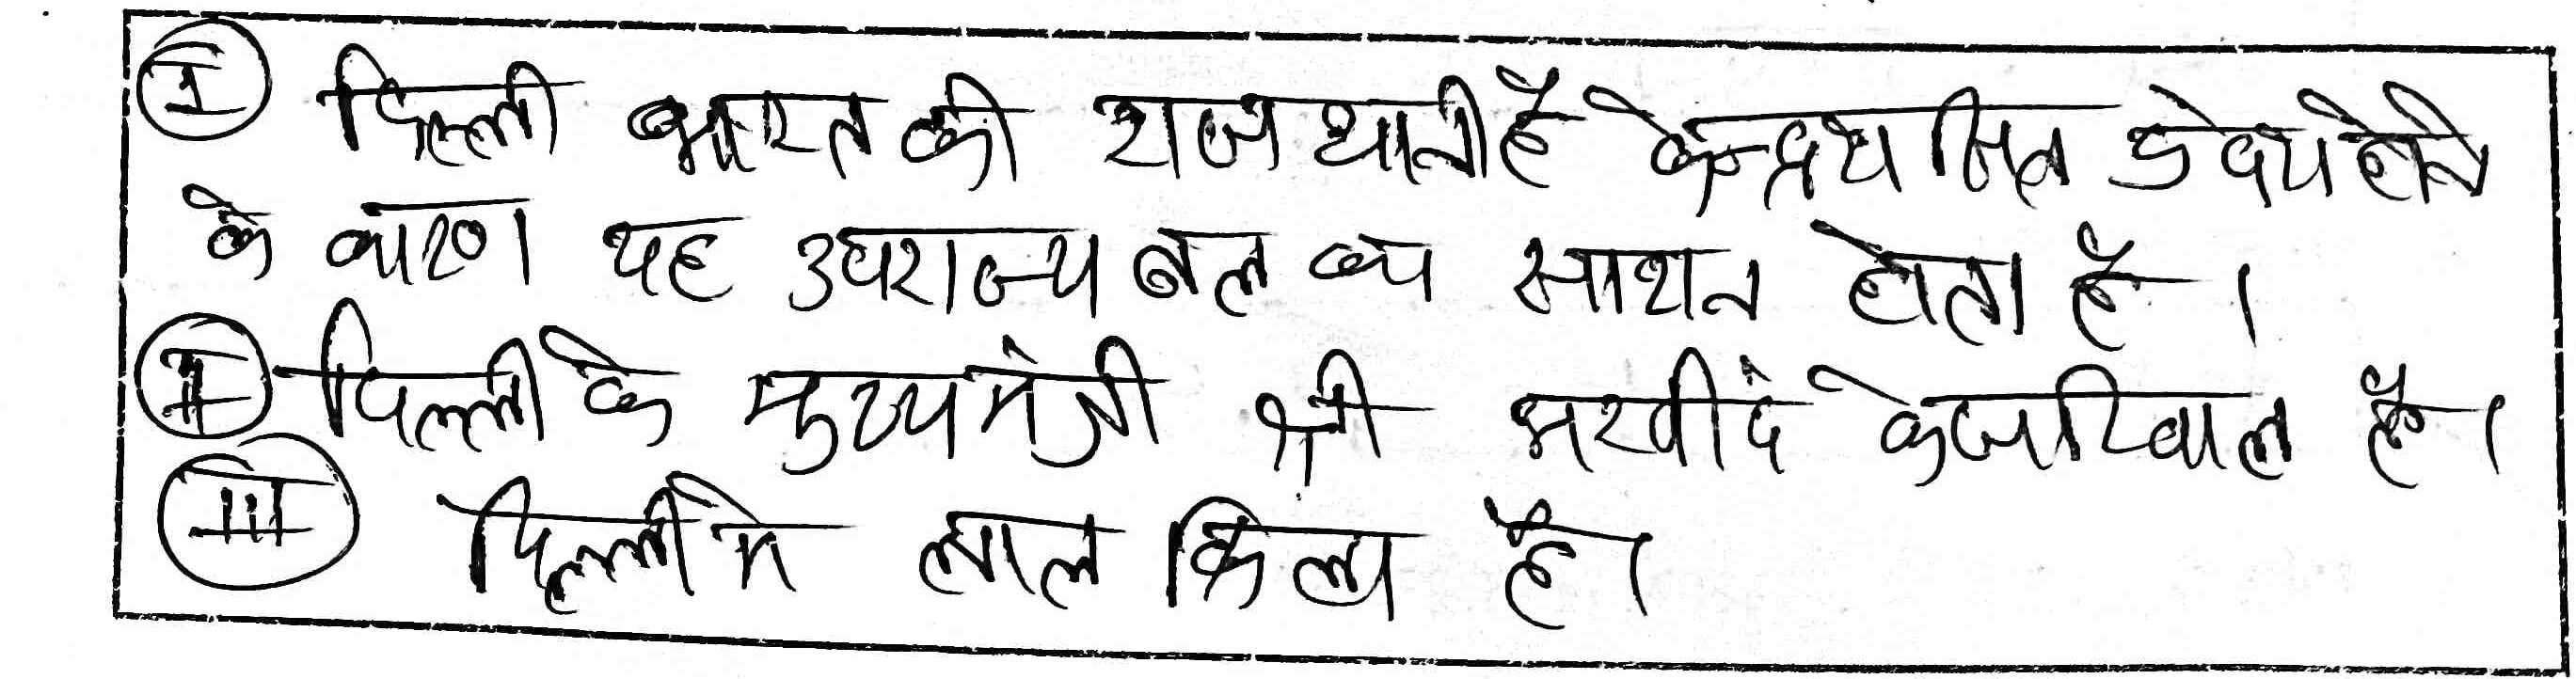 I दिल्ली भारत की राजधानी है केन्द्रशासित होने
के कारण यह उपराज्यबल का साशन होता है।
II दिल्ली के मुख्यमंत्री श्री अरवींद केजरिवाल है।
III दिल्ली मे लाल किला है।